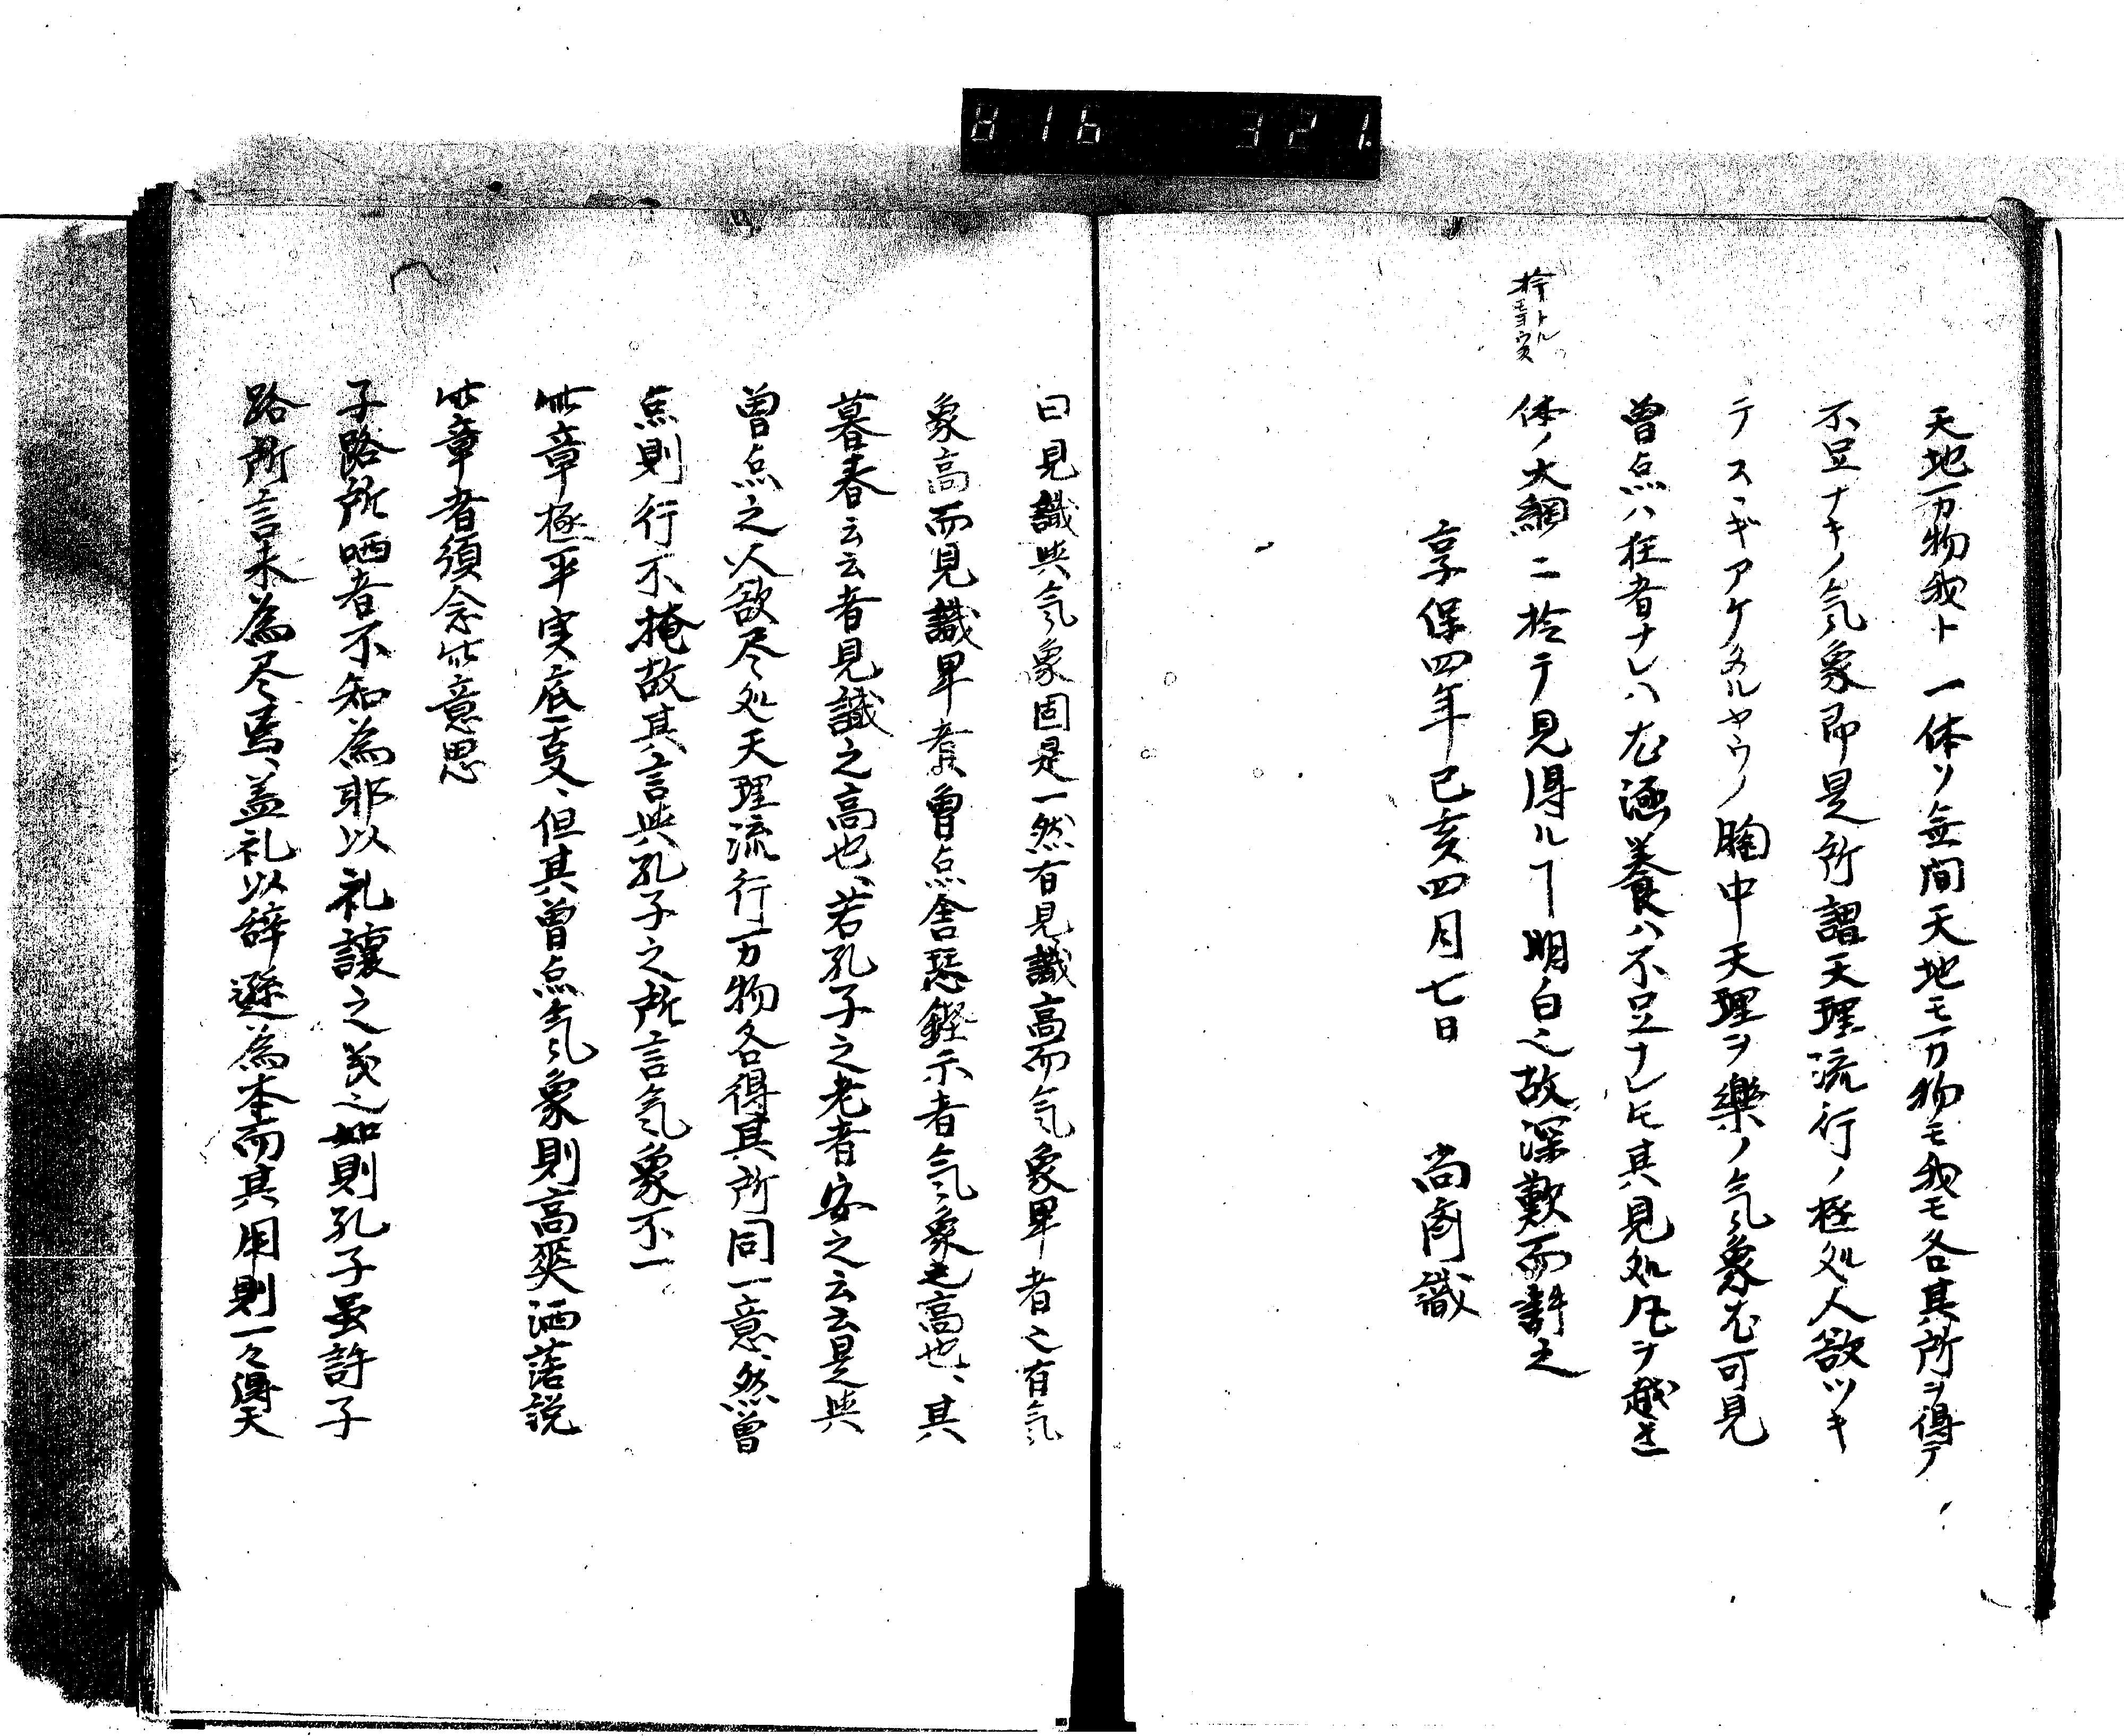 天地万物我ト一体ソ無間天地モ万物モ我モ各其所ヲ得テ
不足ナキノ気象即是所謂天理流行ノ極処人欲ツキ
テスヽギアケタルヤウノ胸中天理ヲ樂ノ気象尤可見
曽点ハ狂者ナレハ尤涵養ハ不足ナレトモ其見処凡ヲ越テ
体ノ大綱ニ於テ見得ルヿ明白也故深歎而許之
享保四年己亥四月七日 尚斎識
曰見識與気象固是一然有見識高而気象卑者之有気
象高而見識卑者矣曽点舍瑟鏗尓者気象之高也、其
暮春云云者見識之高也、若孔子之老者安之云云是與
曽点之人欲尽処天理流行万物各得其所同一意、然曽
点則行不掩故其言與孔子之所言気象不一
此章極平実底事、但其曽点気象則高爽洒落説
此章者須会此意思
子路所哂者不知為耶以礼讓之義也如則孔子虽許子
路所言未為尽焉、盖礼以辞遜為本而其用則一々得天
8 16 321